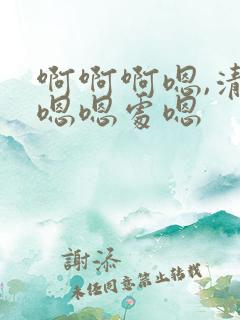 啊啊啊嗯,清
嗯嗯处嗯
謝添
未经同意禁止转载